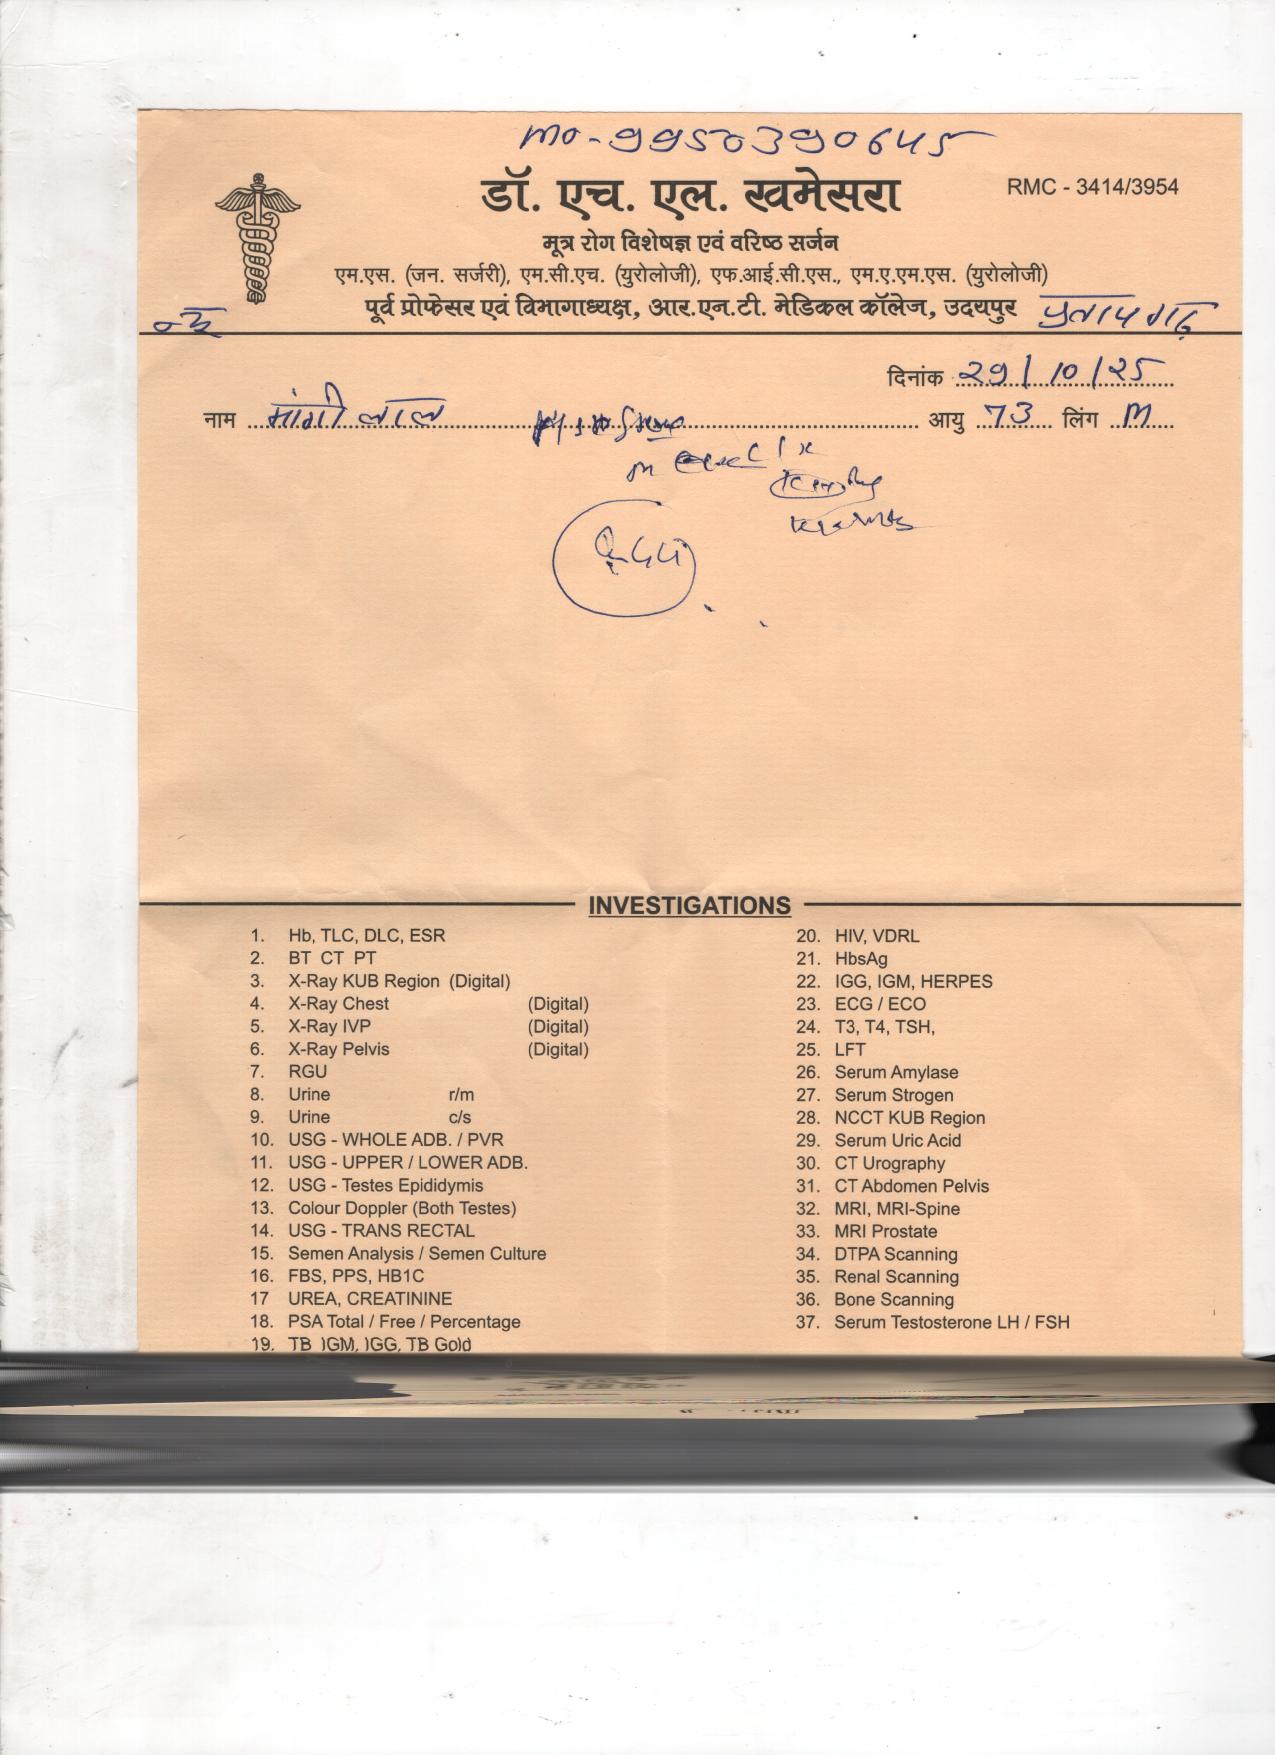 mo-9950390645
डॉ. एच. एल. खमेसरा
RMC - 3414/3954
मूत्र रोग विशेषज्ञ एवं वरिष्ठ सर्जन
एम.एस. (जन. सर्जरी), एम.सी.एच. (युरोलोजी), एफ.आई.सी.एस., एम.ए.एम.एस. (युरोलोजी)
पूर्व प्रोफेसर एवं विभागाध्यक्ष, आर.एन.टी. मेडिकल कॉलेज, उदयपुर
प्रतापगढ़
दिनांक 29/10/25
नाम मांगी लाल आयु 73 लिंग M
INVESTIGATIONS
1. Hb, TLC, DLC, ESR
2. BT CT PT
3. X-Ray KUB Region (Digital)
4. X-Ray Chest (Digital)
5. X-Ray IVP (Digital)
6. X-Ray Pelvis (Digital)
7. RGU
8. Urine r/m
9. Urine c/s
10. USG - WHOLE ADB. / PVR
11. USG - UPPER / LOWER ADB.
12. USG - Testes Epididymis
13. Colour Doppler (Both Testes)
14. USG - TRANS RECTAL
15. Semen Analysis / Semen Culture
16. FBS, PPS, HB1C
17 UREA, CREATININE
18. PSA Total / Free / Percentage
19. TB IGM, IGG, TB Gold
20. HIV, VDRL
21. HbsAg
22. IGG, IGM, HERPES
23. ECG / ECO
24. T3, T4, TSH,
25. LFT
26. Serum Amylase
27. Serum Strogen
28. NCCT KUB Region
29. Serum Uric Acid
30. CT Urography
31. CT Abdomen Pelvis
32. MRI, MRI-Spine
33. MRI Prostate
34. DTPA Scanning
35. Renal Scanning
36. Bone Scanning
37. Serum Testosterone LH / FSH